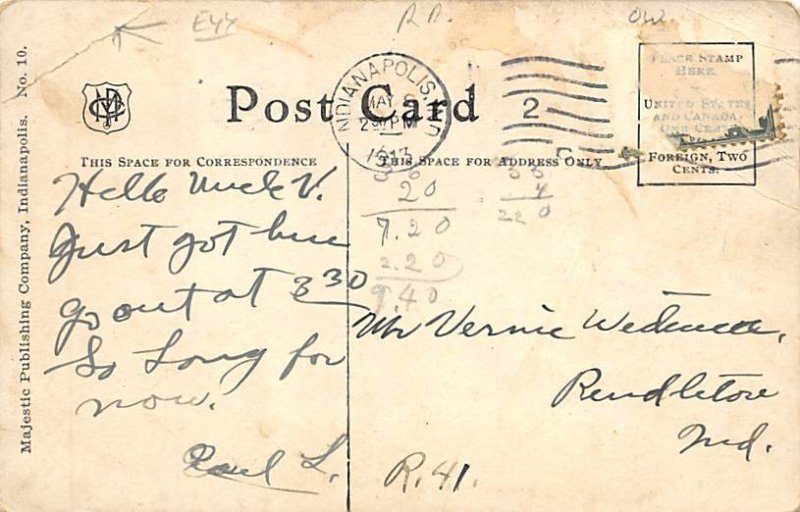 E44 R.R. OW
Post Card 2
INDIANAPOLIS, IND
MAY
2 PM
1913
PLACE STAMP
HERE.
UNITED STATES
AND CANADA
ONE CENT
FOREIGN, TWO
CENTS.
THIS SPACE FOR CORRESPONDENCE
THIS SPACE FOR ADDRESS ONLY
Majestic Publishing Company, Indianapolis. No. 10.
Hello Uncle V.
Just got here
go out at 3 30
So Long for
now.
Paul L.
36
20
7.20
2.20
9.40
55
4
220
Mr Vernie
Pendleton
Ind.
R.41.